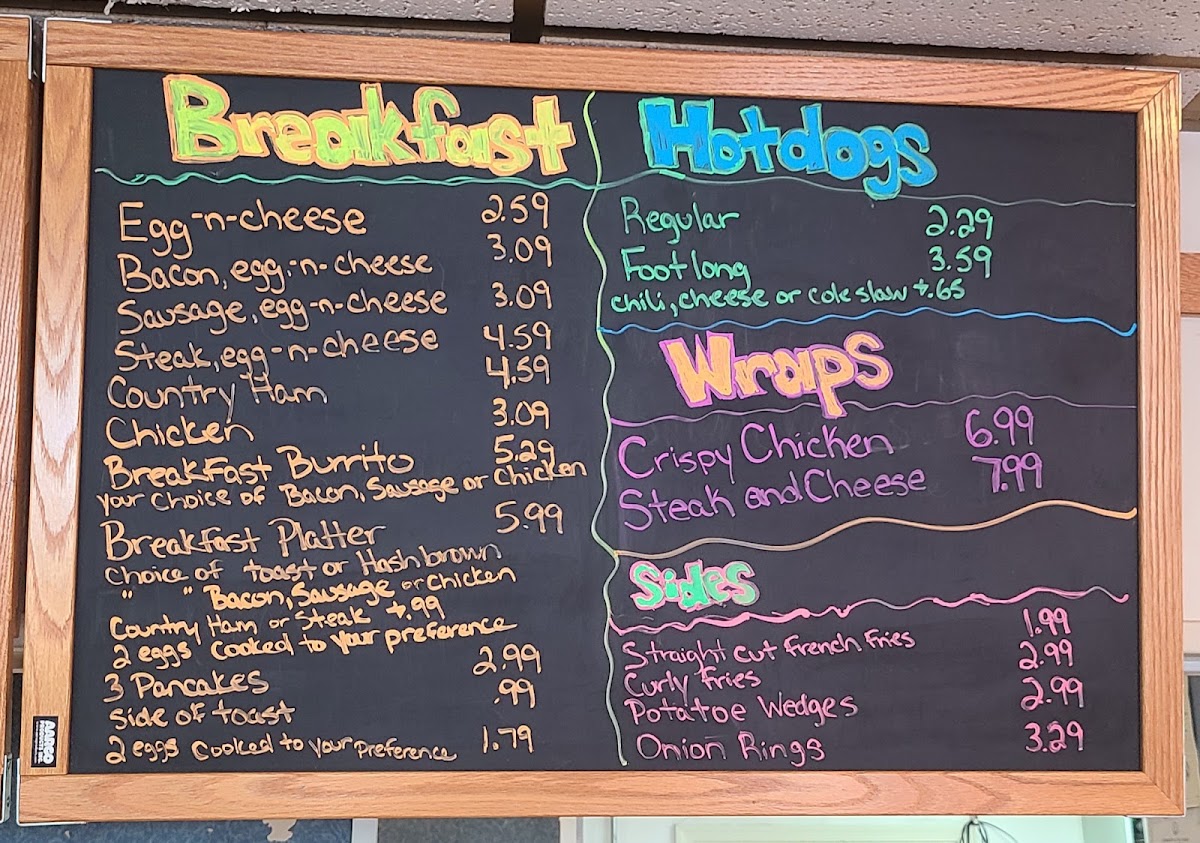 Breakfast
Egg-n-cheese 2.59
Bacon, egg,-n-cheese 3.09
Sausage, egg-n-cheese 3.09
Steak, egg-n-cheese 4.59
Country Ham 4.59
Chicken 3.09
Breakfast Burrito 5.29
your choice of Bacon, Sausage or Chicken
Breakfast Platter 5.99
Choice of toast or Hashbrown
" " Bacon, Sausage or Chicken
Country Ham or Steak +.99
2 eggs cooked to your preference
3 Pancakes 2.99
Side of toast .99
2 eggs cooked to your preference 1.79
Hotdogs
Regular 2.29
Footlong 3.59
chili, cheese or cole slaw +.65
Wraps
Crispy Chicken 6.99
Steak and Cheese 7.99
Sides
Straight cut french fries 1.99
Curly fries 2.99
Potatoe Wedges 2.99
Onion Rings 3.29
AARCO